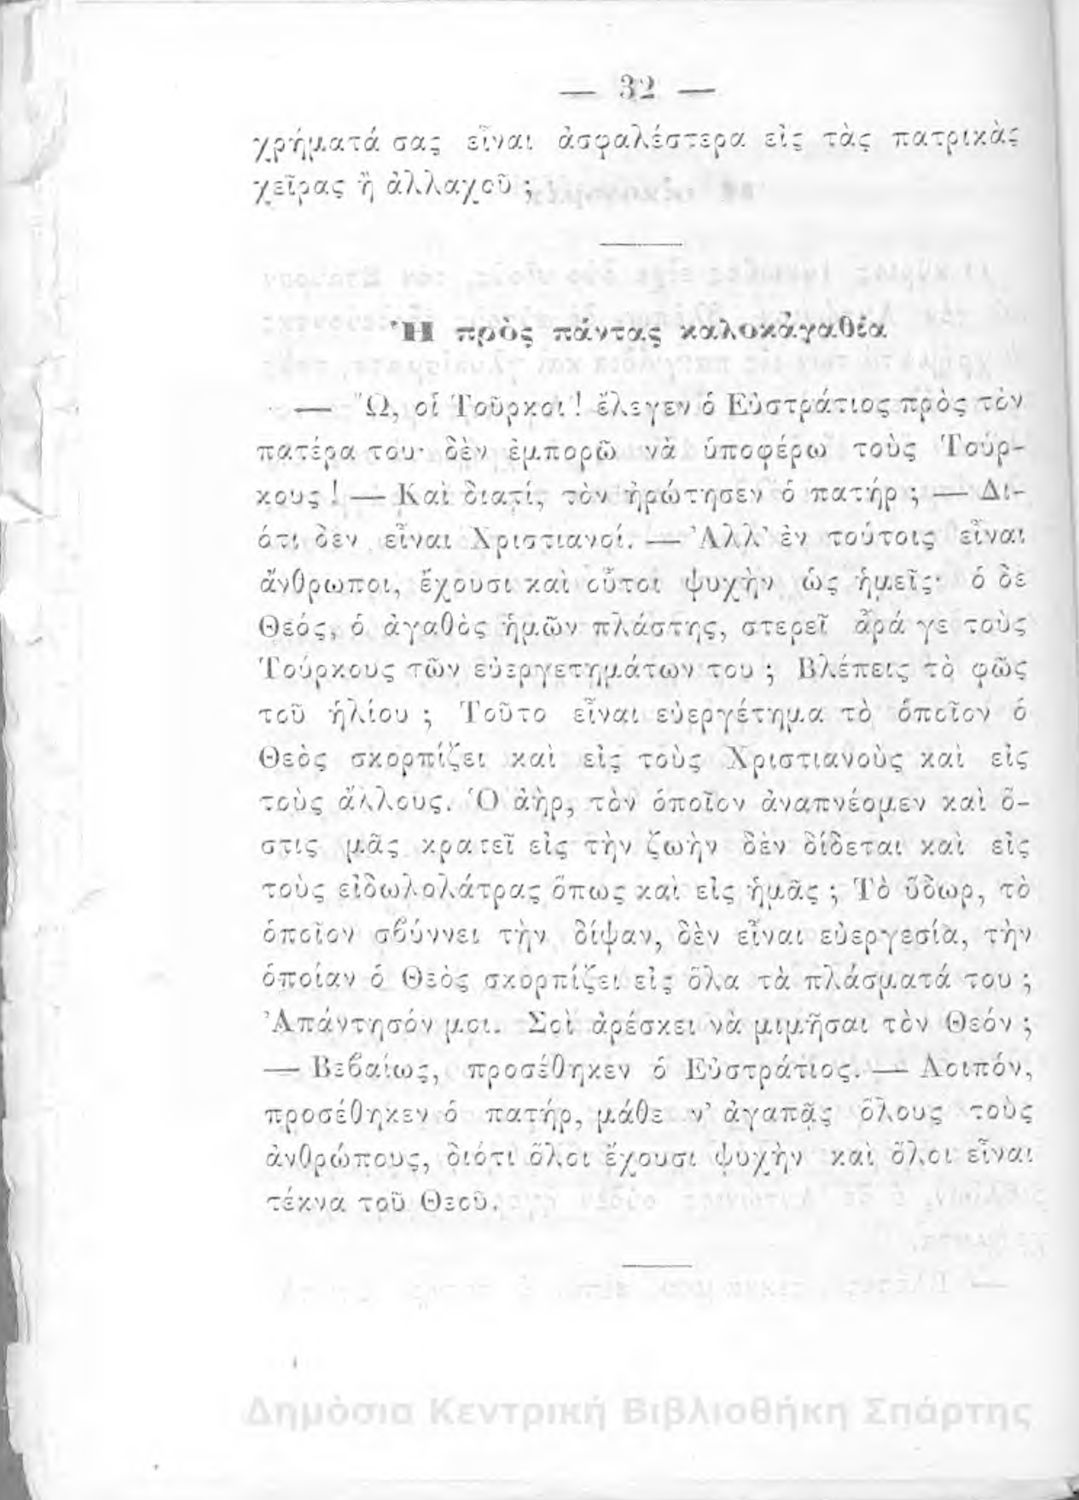 — 32 —
χρήματά σας εἶναι ἀσφαλέστερα εἰς τὰς πατρικὰς
χεῖρας ἢ ἀλλαχοῦ ;
Ἡ πρὸς πάντας καλοκἀγαθία
— Ὢ, οἱ Τοῦρκοι ! ἔλεγεν ὁ Εὐστράτιος πρὸς τὸν
πατέρα του· δὲν ἐμπορῶ νὰ ὑποφέρω τοὺς Τούρ-
κους ! — Καὶ διατί, τὸν ἠρώτησεν ὁ πατήρ ; — Δι-
ότι δὲν εἶναι Χριστιανοί. — Ἀλλ’ ἐν τούτοις εἶναι
ἄνθρωποι, ἔχουσι καὶ οὗτοι ψυχὴν ὡς ἡμεῖς· ὁ δὲ
Θεός, ὁ ἀγαθὸς ἡμῶν πλάστης, στερεῖ ἆρά γε τοὺς
Τούρκους τῶν εὐεργετημάτων του ; Βλέπεις τὸ φῶς
τοῦ ἡλίου ; Τοῦτο εἶναι εὐεργέτημα τὸ ὁποῖον ὁ
Θεὸς σκορπίζει καὶ εἰς τοὺς Χριστιανοὺς καὶ εἰς
τοὺς ἄλλους. Ὁ ἀὴρ, τὸν ὁποῖον ἀναπνέομεν καὶ ὅ-
στις μᾶς κρατεῖ εἰς τὴν ζωὴν δὲν δίδεται καὶ εἰς
τοὺς εἰδωλολάτρας ὅπως καὶ εἰς ἡμᾶς ; Τὸ ὕδωρ, τὸ
ὁποῖον σβύννει τὴν δίψαν, δὲν εἶναι εὐεργεσία, τὴν
ὁποίαν ὁ Θεὸς σκορπίζει εἰς ὅλα τὰ πλάσματά του ;
Ἀπάντησόν μοι. Σοὶ ἀρέσκει νὰ μιμῆσαι τὸν Θεόν ;
— Βεβαίως, προσέθηκεν ὁ Εὐστράτιος. — Λοιπόν,
προσέθηκεν ὁ πατήρ, μάθε ν’ ἀγαπᾷς ὅλους τοὺς
ἀνθρώπους, διότι ὅλοι ἔχουσι ψυχὴν καὶ ὅλοι εἶναι
τέκνα τοῦ Θεοῦ.
Δημόσια Κεντρική Βιβλιοθήκη Σπάρτης